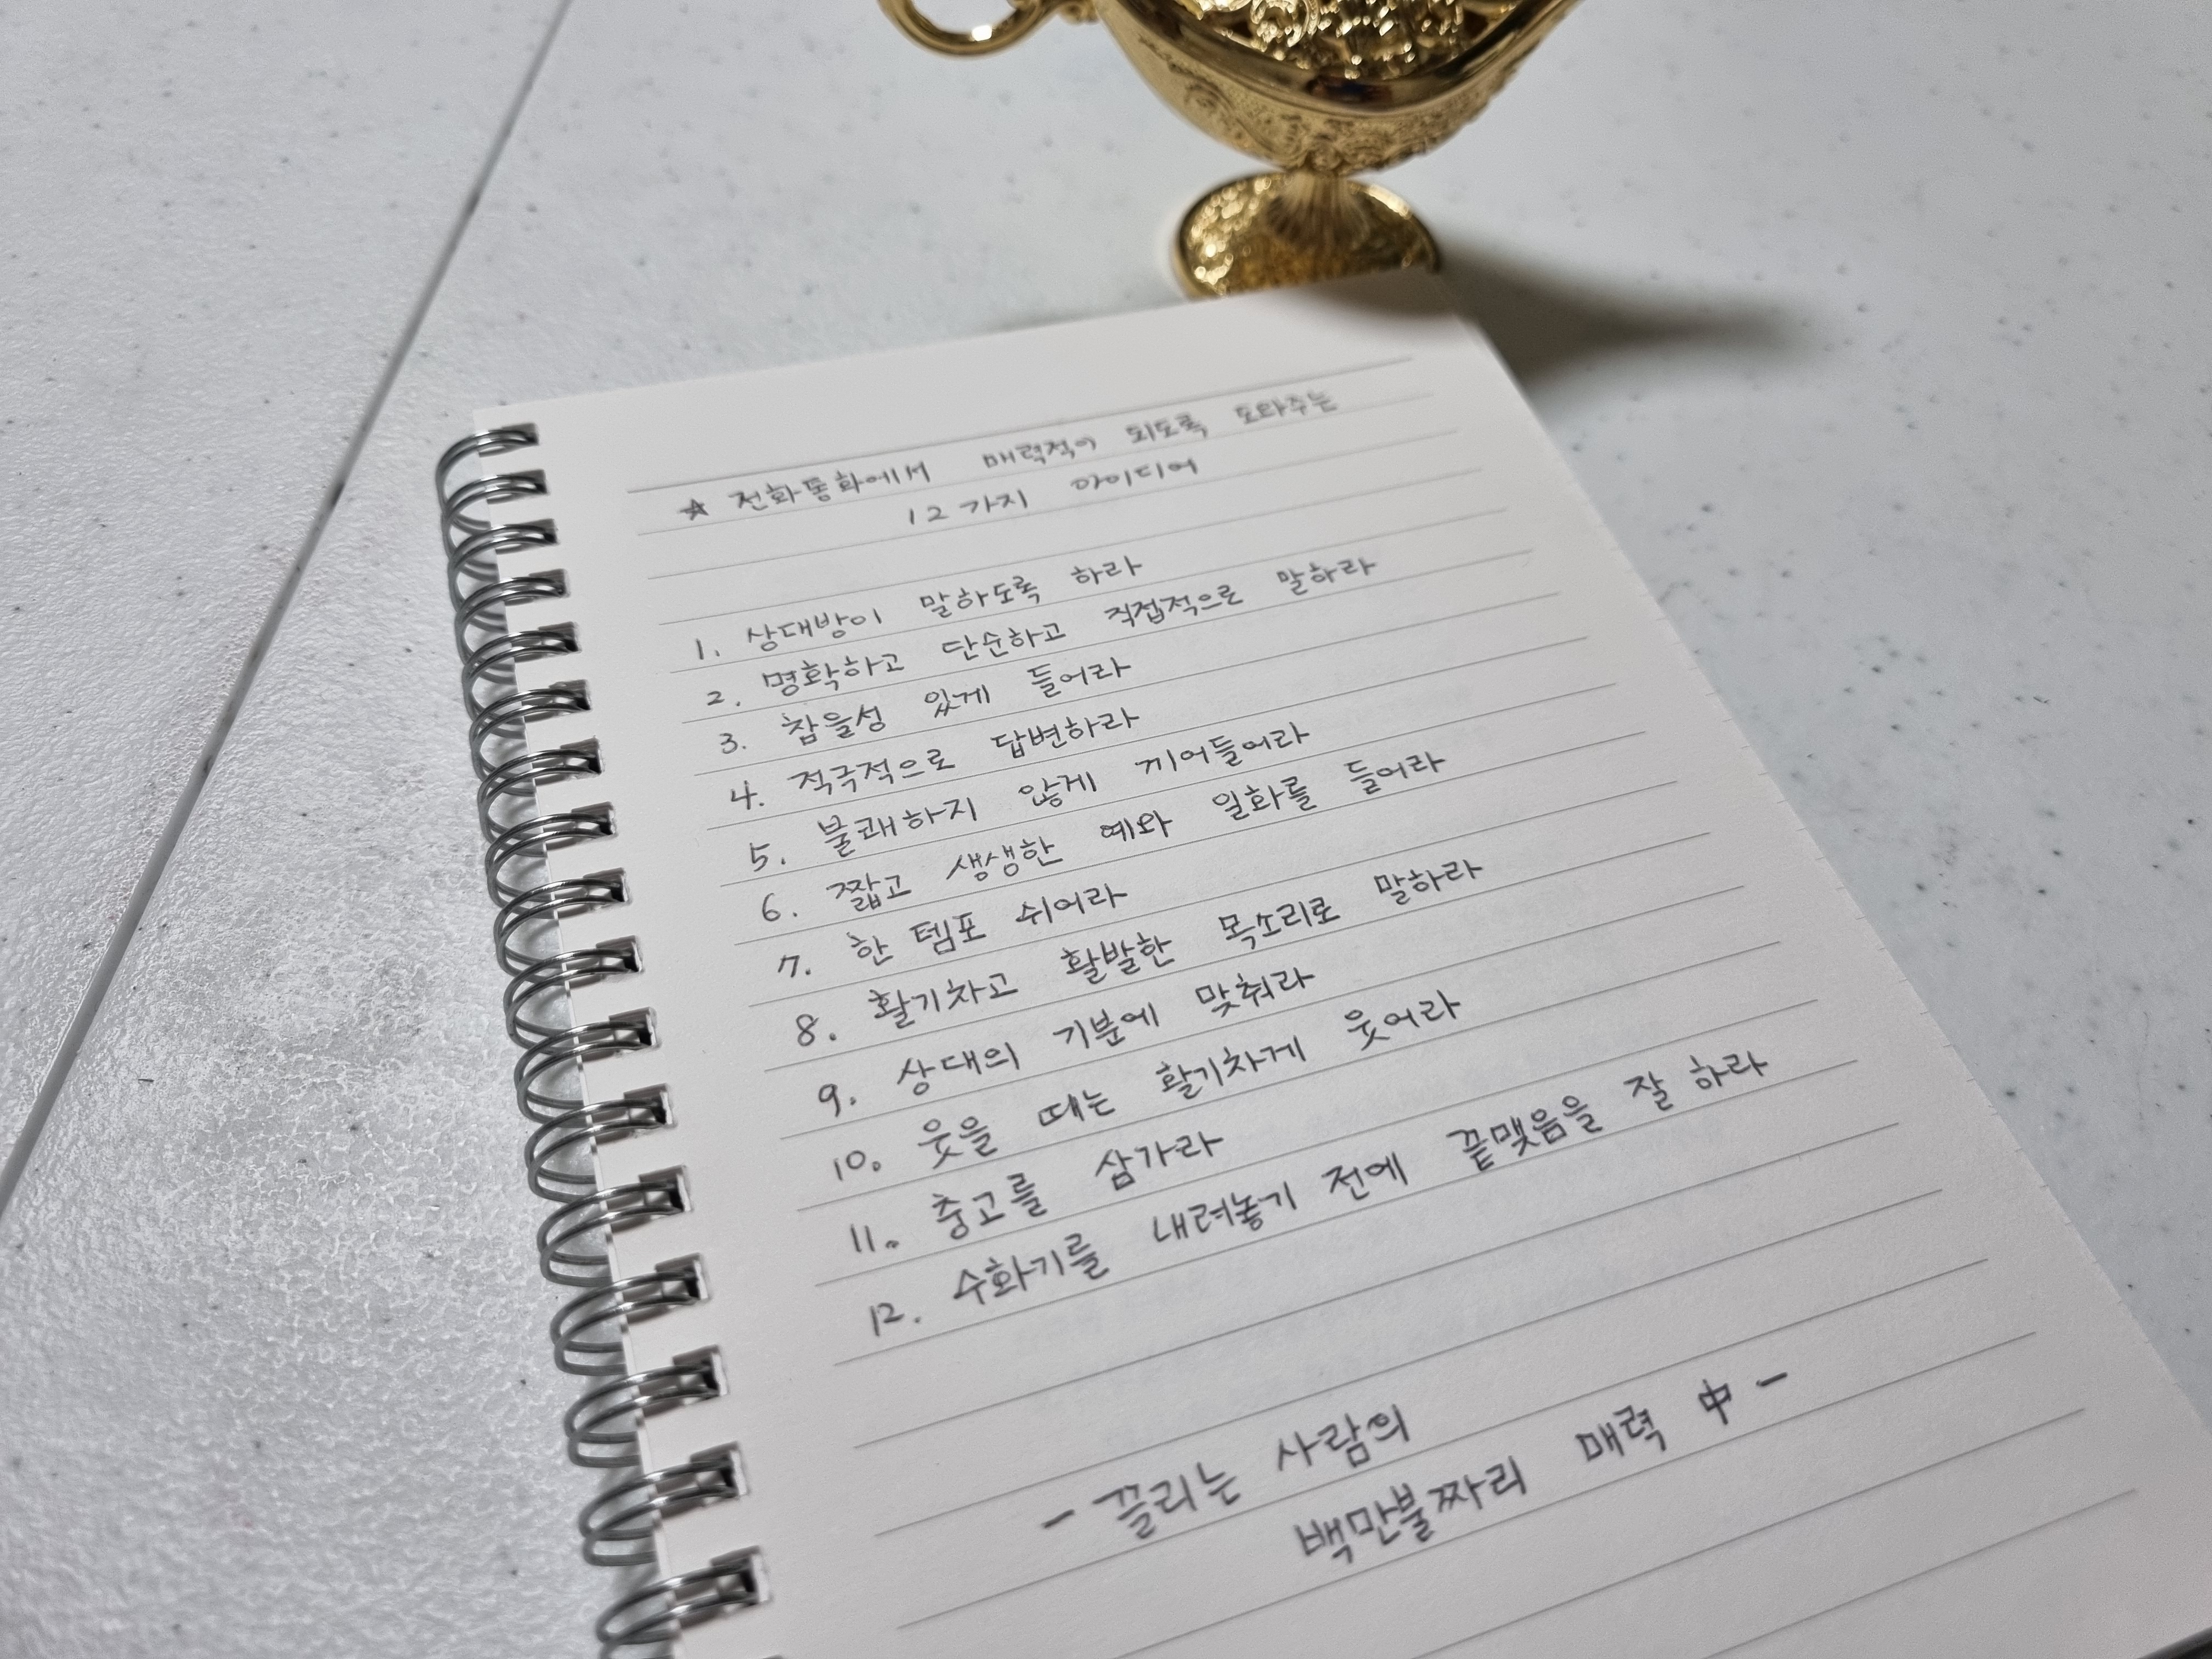 ☆ 전화통화에서 매력적이 되도록 도와주는
12가지 아이디어
1. 상대방이 말하도록 하라
2. 명확하고 단순하고 직접적으로 말하라
3. 참을성 있게 들어라
4. 적극적으로 답변하라
5. 불쾌하지 않게 끼어들어라
6. 짧고 생생한 예와 일화를 들어라
7. 한 템포 쉬어라
8. 활기차고 활발한 목소리로 말하라
9. 상대의 기분에 맞춰라
10. 웃을 때는 활기차게 웃어라
11. 충고를 삼가라
12. 수화기를 내려놓기 전에 끝맺음을 잘 하라
- 끌리는 사람의
백만불짜리 매력 中 -